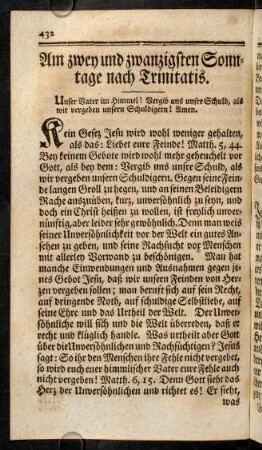 432
Am zwey und zwanzigsten Sonn-
tage nach Trinitatis.
Unser Vater im Himmel! Vergib uns unsre Schuld, als
wir vergeben unsern Schuldigern! Amen.
Kein Gesez Jesu wird wohl weniger gehalten,
als das: Liebet eure Feinde! Matth. 5, 44.
Bey keinem Gebote wird wohl mehr geheuchelt vor
Gott, als bey dem: Vergib uns unsre Schuld, als
wir vergeben unsern Schuldigern. Gegen seine Fein-
de langen Groll zu hegen, und an seinen Beleidigern
Rache auszuüben, kurz, unversöhnlich zu seyn, und
doch ein Christ heißen zu wollen, ist freylich unver-
nünftig, aber leider sehr gewöhnlich. Denn man weis
seiner Unversöhnlichkeit vor der Welt ein gutes An-
sehen zu geben, und seine Rachsucht vor Menschen
mit allerley Vorwand zu beschönigen. Man hat
manche Einwendungen und Ausnahmen gegen je-
nes Gebot Jesu, daß wir unsern Feinden von Her-
zen vergeben sollen; man beruft sich auf sein Recht,
auf dringende Noth, auf schuldige Selbstliebe, auf
seine Ehre und das Urtheil der Welt. Der Unver-
söhnliche will sich und die Welt überreden, daß er
recht und klüglich handle. Was urtheilt aber Gott
über die Unversöhnlichen und Rachsüchtigen? Jesus
sagt: So ihr den Menschen ihre Fehle nicht vergebet,
so wird euch euer himmlischer Vater eure Fehle auch
nicht vergeben! Matth. 6, 15. Denn Gott sieht das
Herz der Unversöhnlichen und richtet es! Er sieht,
was